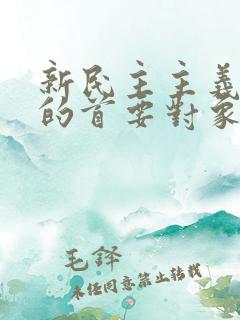 新民主主義
的首要對象
毛鐸
未经同意禁止转载